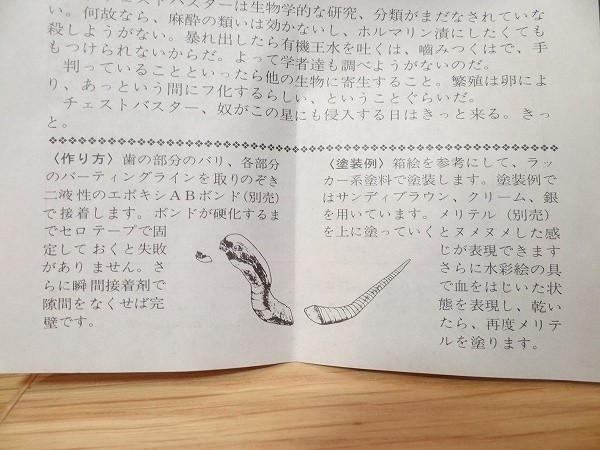 チェストバスターは生物学的な研究、分類がまだなされていな
い。何故なら、麻酔の類いは効かないし、ホルマリン漬にしたくても
殺しようがない。暴れ出したら有機王水を吐くは、嚙みつくはで、手
もつけられないからだ。よって学者達も調べようがないのだ。
判っていることといったら他の生物に寄生すること。繁殖は卵によ
り、あっという間にフ化するらしい、ということぐらいだ。
チェストバスター、奴がこの星にも侵入する日はきっと来る。きっ
と。
〈作り方〉歯の部分のバリ、各部分
のパーティングラインを取りのぞき
二液性のエポキシABボンド(別売)
で接着します。ボンドが硬化するま
でセロテープで固
定しておくと失敗
がありません。さ
らに瞬間接着剤で
隙間をなくせば完
壁です。
〈塗装例〉箱絵を参考にして、ラッ
カー系塗料で塗装します。塗装例で
はサンディブラウン、クリーム、銀
を用いています。メリテル(別売)
を上に塗っていくとヌメヌメした感
じが表現できます
さらに水彩絵の具
で血をはじいた状
態を表現し、乾い
たら、再度メリテ
ルを塗ります。